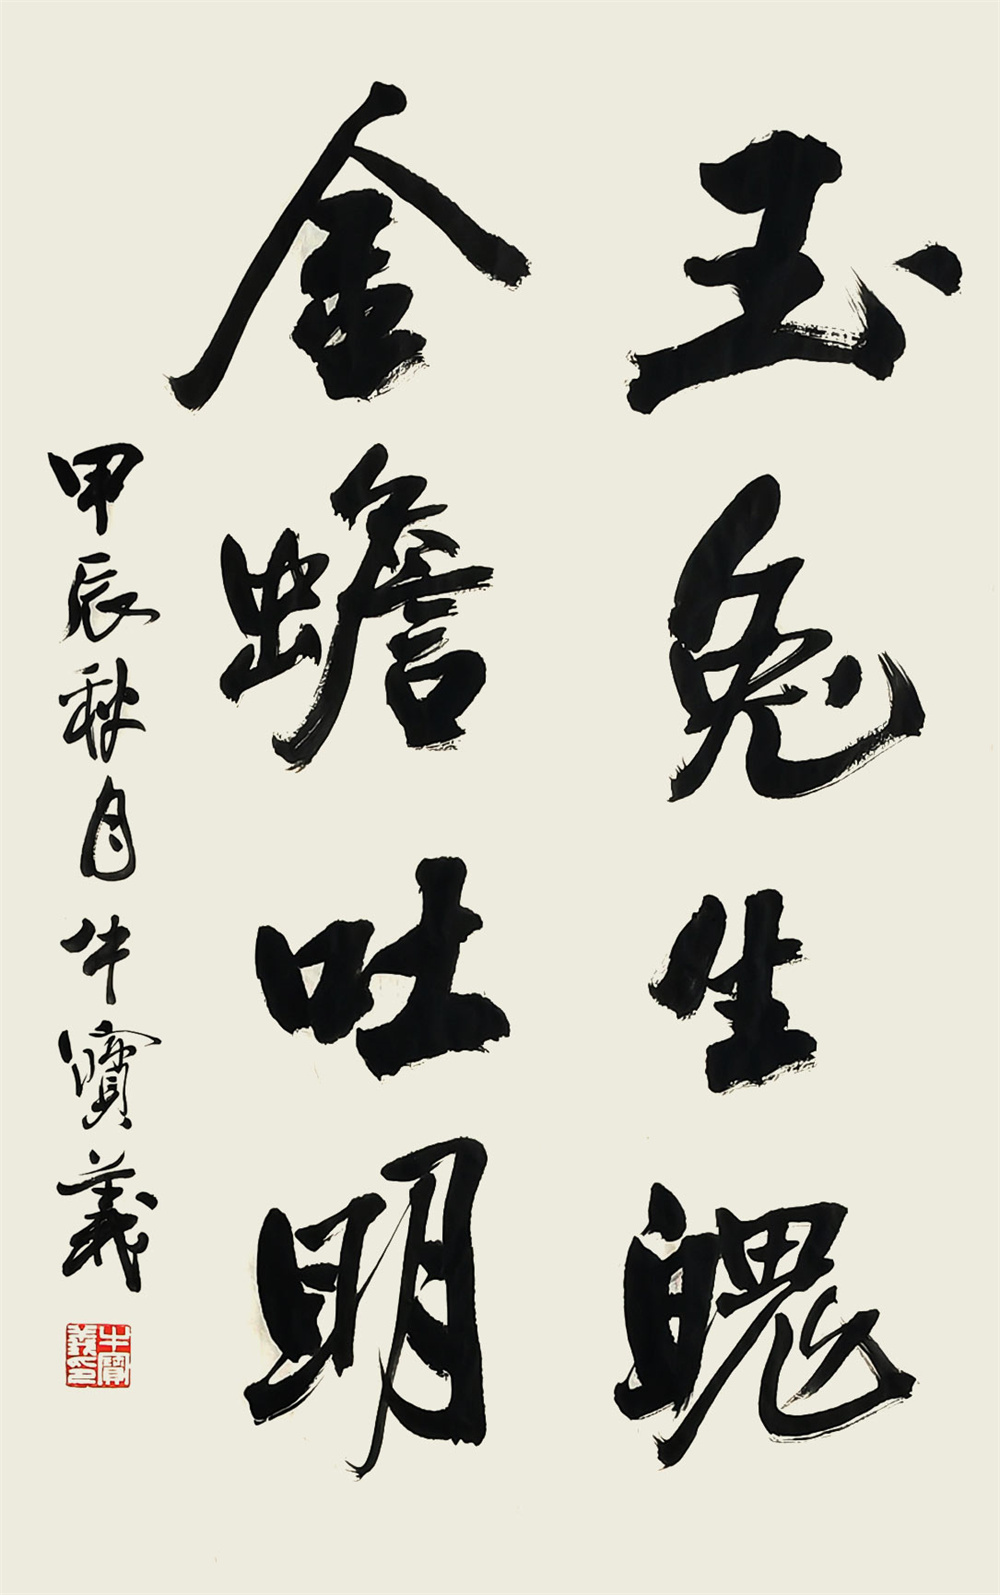 玉兔生魄
金蟾吐明
甲辰秋月牛寶義
牛寶義印